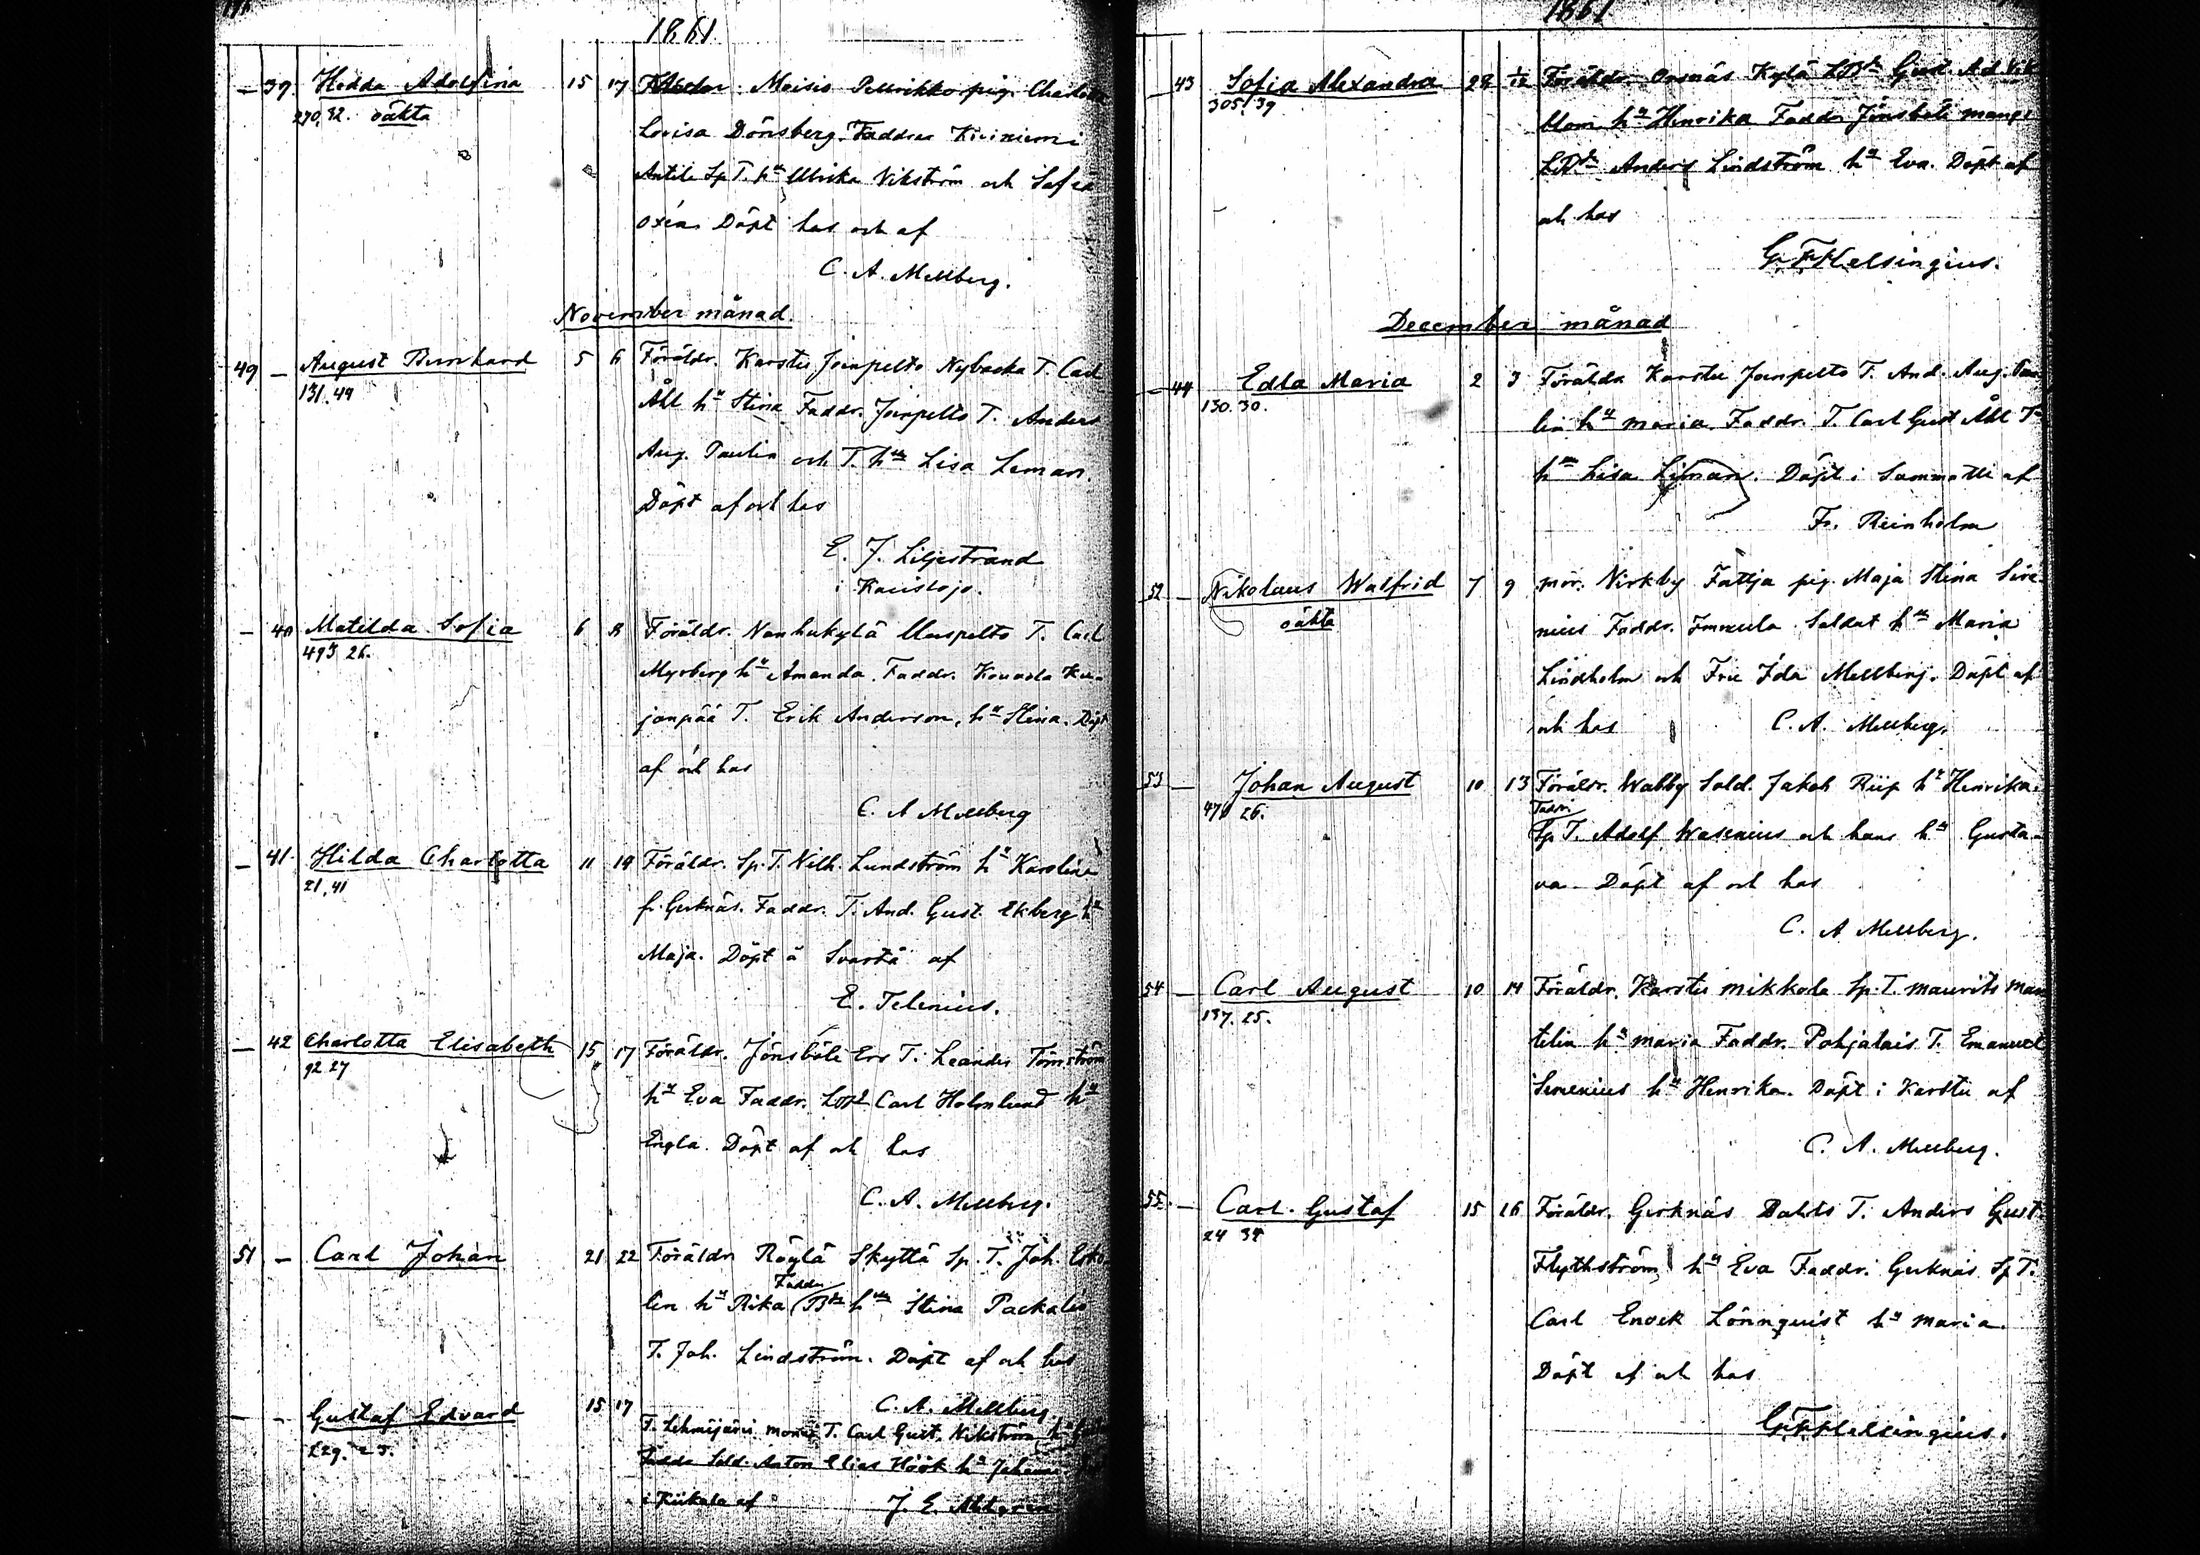 1861
— 39 Hedda Adolfina 15 17 Föräldr. Moisio Pellrikko pig. Charlotta
270, 32. oäkta Lovisa Dönsberg. Faddrar Kiviniemi
Antila Sp T. hu Ulrika Vikström och Sofia
Oxén. Döpt has och af
C. A. Mellberg.
November månad.
49 — August Bernhard 5 6 Föräldr. Karstu Joenpelto Nybacka T. Carl
131. 49 Åhl hu Stina Faddr. Joenpelto T. Anders
Aug. Paulin och T. hu Lisa Leman.
Döpt af och has
E. J. Liljestrand
i Karislojo.
— 40 Matilda Sofia 6 8 Föräldr. Nanhukylä Uuspelto T. Carl
493 26. Myrberg hu Amanda. Faddr. Kouvola
T. Erik Anderson, hu Stina. Döpt
af och has
C. A Mellberg
— 41. Hilda Charlotta 11 19 Föräldr. Sp. T. Vilh. Lundström hu Karolina
21, 41 fr. Gerknäs. Faddr. T. And. Gust. Ekberg hu
Maja. Döpt å Svartå af
E. Telenius.
— 42 Charlotta Elisabeth 15 17 Föräldr. Jönsböle Ers T. Leander Törnström
92 27 hu Eva Faddr. Carl Holmlund hu
Engla. Döpt af och has
C. A. Mellberg.
51 — Carl Johan 21 22 Föräldr Röylä Skyttä Sp. T. Joh.
Faddr
lin hu Rika hu Stina Packalén
T. Joh. Lindström. Döpt af och has
C. A. Mellberg
— — Gustaf Edvard 15 17 F. Lehmijärvi T. Carl Gust. Vikström hu
229. 25. Faddr Sold. Anton Elias Höök hu Johanna
af J. E. Ahlgren
1861
— 43 Sofia Alexandra 28 1/12 Föräldr. Orsnäs Kylä Gust. Ad. Vik
305/39 blom hu Henrika Faddr. Jönsböle Mangs
Anders Lindström hu Eva. Döpt af
och has
G. F. Helsingius.
December månad
— 44 Edla Maria 2 3 Förälda Karstu Joenpelto T. And. Aug. Pau
130. 30. lin hu Maria. Faddr. T. Carl Gust Åhl T
hu Lisa Liman. Döpt i Sammatti af
Fr. Reinholm
52 — Nikolaus Walfrid 7 9 mor. Virkby Fättja pig. Maja Stina Sire
oäkta nius Faddr. Immula Soldat hu Maria
Lindholm och Frie Ida Mellberg. Döpt af
och has C. A. Mellberg.
53 — Johan August 10 13 Föräldr. Wabby Sold. Jakob Riip hu Henrika.
Faddr.
26. Sp T. Adolf Wasenius och hans hu Gusta-
va. Döpt af och has
C. A Mellberg.
54 — Carl August 10 14 Föräldr. Karstu Mikkola Sp. T. Maurits Man
137. 25. telin hu Maria Faddr. Pohjalais T. Emanuel
Sirenius hu Henrika. Döpt i Karstu af
C. A. Mellberg.
55. — Carl Gustaf 15 16 Föräldr. Gerknäs Dahls T. Anders Gust
24 34 Flythström hu Eva Faddr. Gerknäs Sp T.
Carl Enock Lönnquist hu Maria.
Döpt af och has
G. F. Helsingius.